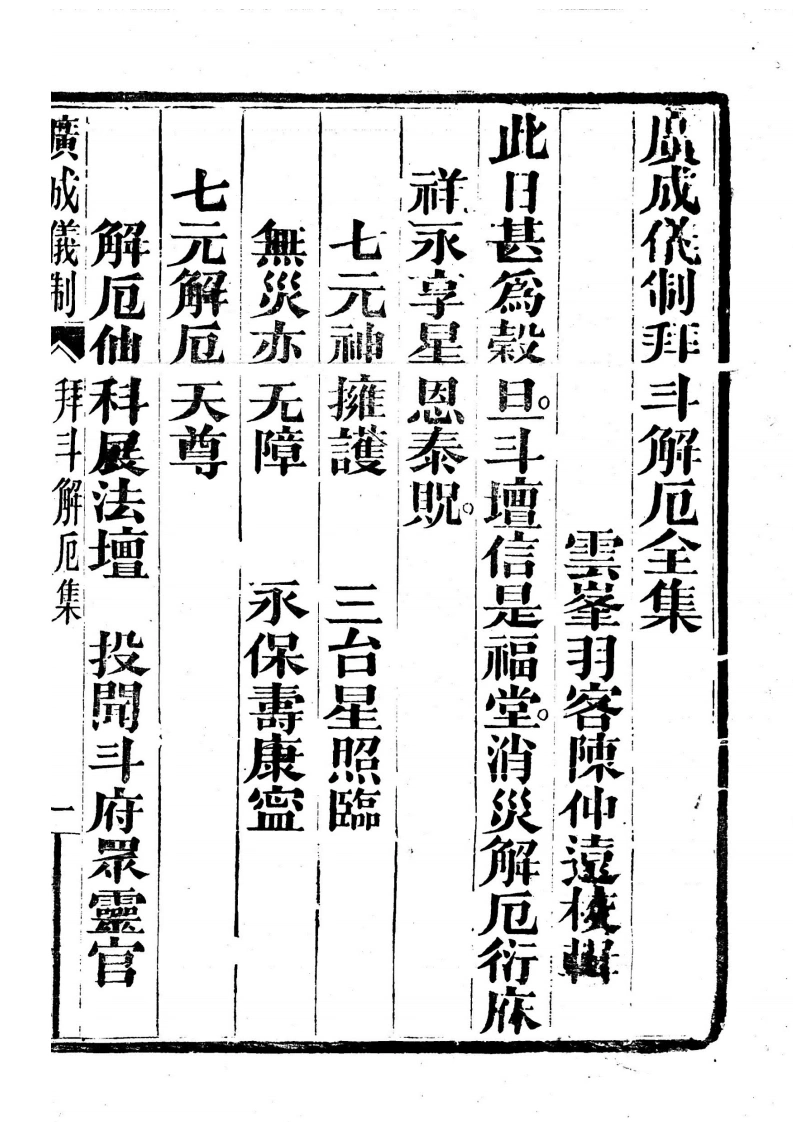 廣成儀制拜斗解厄全集
雲峯羽客陳仲遠校輯
此日甚爲穀旦。斗壇信是福堂。消災解厄衍庥
祥永享星恩泰貺。
七元神擁護　三台星照臨
無災亦无障　永保壽康寍
七元解厄天尊
解厄仙科展法壇　投聞斗府眾靈官
廣成儀制　拜斗解厄集　一